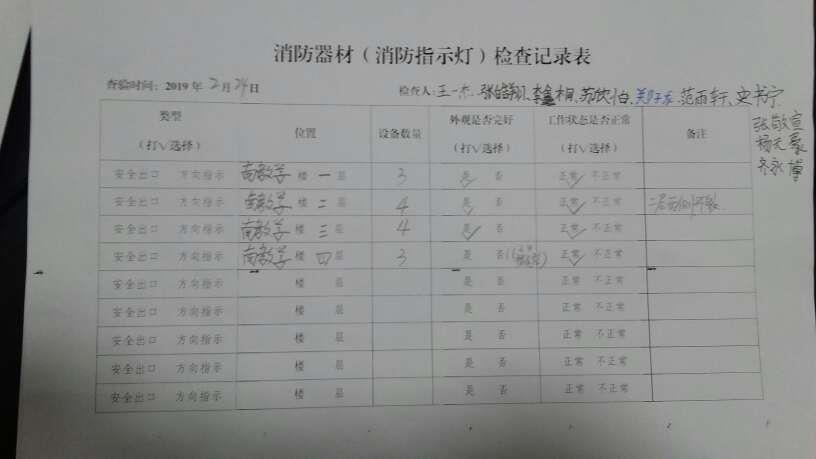 消防器材（消防指示灯）检查记录表
查验时间：2019 年 2 月 24 日 检查人：王一杰、张皓翔、李 桐、苏欣怡、 范雨轩、史书宁
张敬宣
杨天豪
齐永博
类型 位置 设备数量 外观是否完好 工作状态是否正常 备注
（打√选择） （打√选择） （打√选择）
安全出口 方向指示 南教学 楼 一 层 3 是√ 否 正常√ 不正常
安全出口 方向指示 南教学 楼 二 层 4 是√ 否 正常√ 不正常 二层西侧
安全出口 方向指示 南教学 楼 三 层 4 是√ 否 正常√ 不正常
安全出口 方向指示 南教学 楼 四 层 3 是 否 正常√ 不正常
安全出口 方向指示 楼 层 是 否 正常 不正常
安全出口 方向指示 楼 层 是 否 正常 不正常
安全出口 方向指示 楼 层 是 否 正常 不正常
安全出口 方向指示 楼 层 是 否 正常 不正常
安全出口 方向指示 楼 层 是 否 正常 不正常